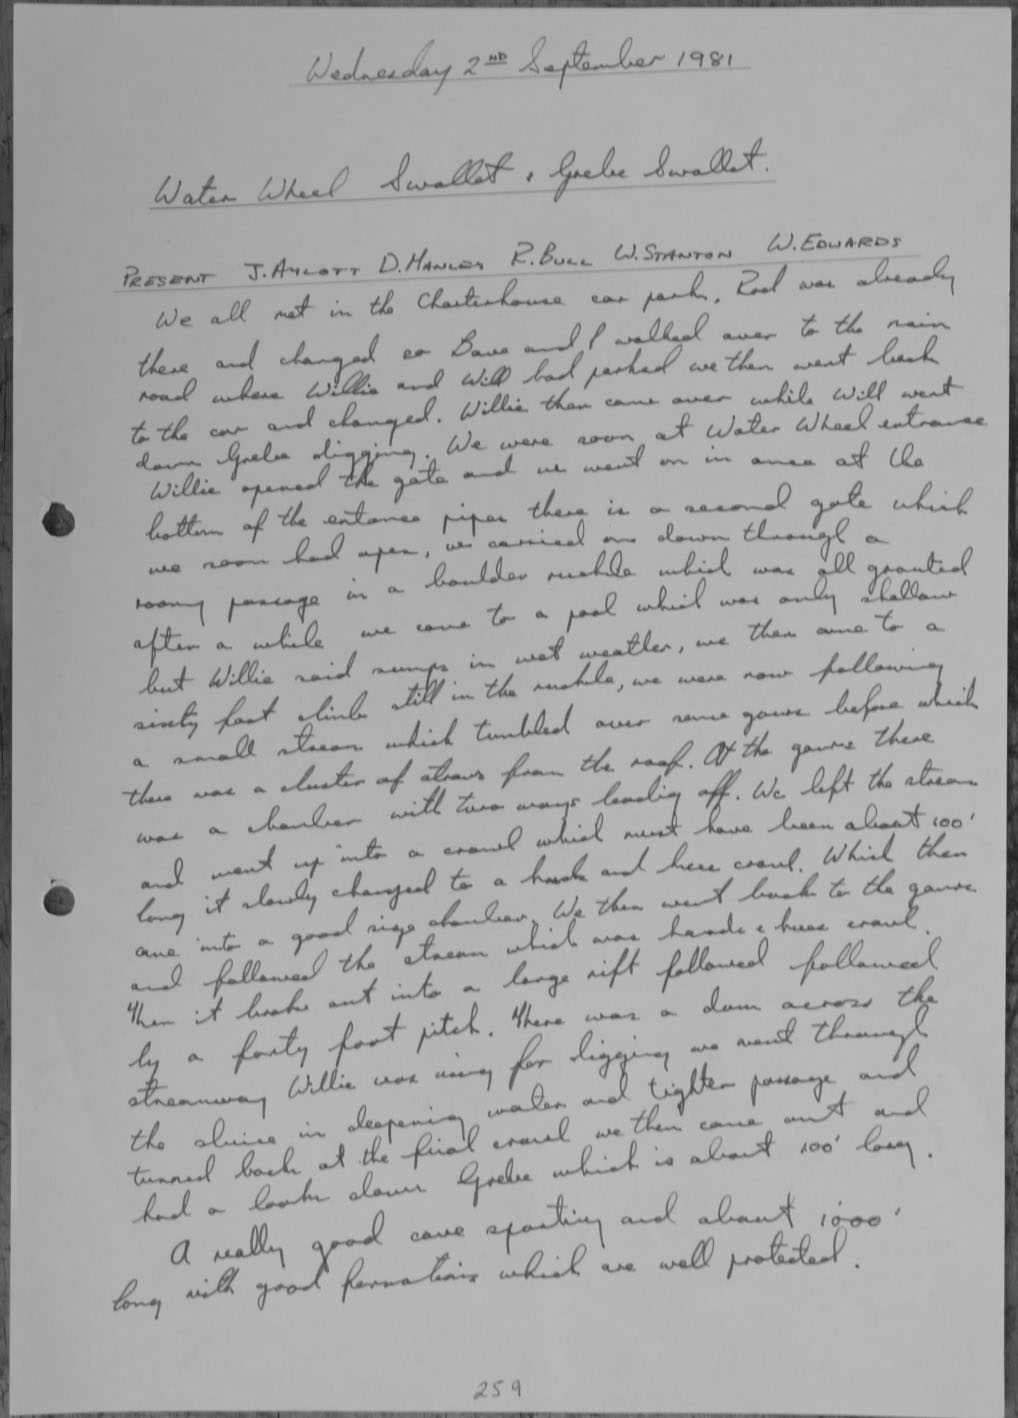 Wednesday 2ND September 1981
Water Wheel Swallet & Grebe Swallet.
PRESENT J. AYLOTT D. HANLEY R. BULL W. STANTON W. EDWARDS
We all met in the Charterhouse car park. Rod was already
there and changed so Dave and I walked over to the main
road where Willie and Will had parked we then went back
to the car and changed. Willie then came over while Will went
down Grebe digging. We were soon at Water Wheel entrance
Willie opened the gate and we went on in once at the
bottom of the entance pipes there is a second gate which
we soon had open, we carried on down through a
roomy passage in a boulder ruckle which was all grouted
after a while we came to a pool which was only shallow
but Willie said sumps in wet weather, we then came to a
sixty foot climb still in the ruckle, we were now following
a small stream which tumbled over some gours before which
there was a cluster of straws from the roof. At the gours there
was a chamber with two ways leading off. We left the stream
and went up into a crawl which must have been about 100'
long it slowly changed to a hands and knees crawl. Which then
came into a good size chamber. We then went back to the gours
and followed the stream which was hands & knees crawl.
Then it broke out into a large rift followed followed
by a forty foot pitch. There was a dam across the
streamway Willie was using for digging we went through
the sluice in deepening water and tighter passage and
turned back at the final crawl we then came out and
had a look down Grebe which is about 100' long.
A really good cave sporting and about 1000'
long with good formations which are well protected.
259